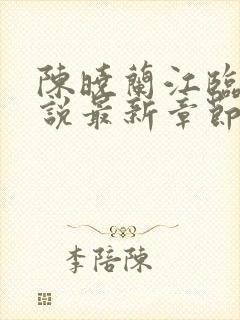 陳曉蘭江臨
說最新章節
李陪陳